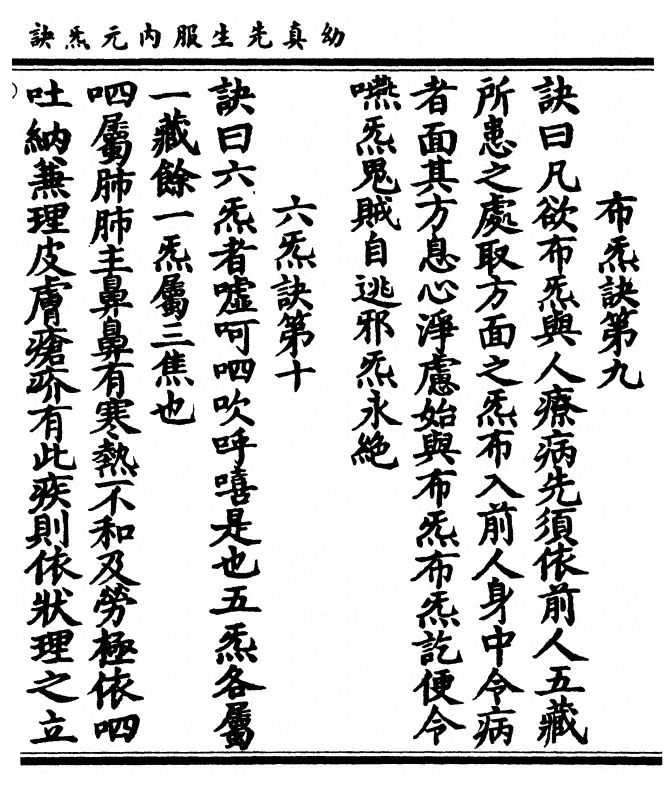 幼真先生服内元炁訣
布炁訣第九
訣曰凡欲布炁與人療病先須依前人五藏
所患之處取方面之炁布入前人身中令病
者面其方息心淨慮始與布炁布炁訖便令
嚥炁鬼賊自逃邪炁永絶
六炁訣第十
訣曰六炁者噓呵呬吹呼嘻是也五炁各屬
一藏餘一炁屬三焦也
呬屬肺肺主鼻鼻有寒熱不和及勞極依呬
吐納兼理皮膚瘡疥有此疾則依狀理之立